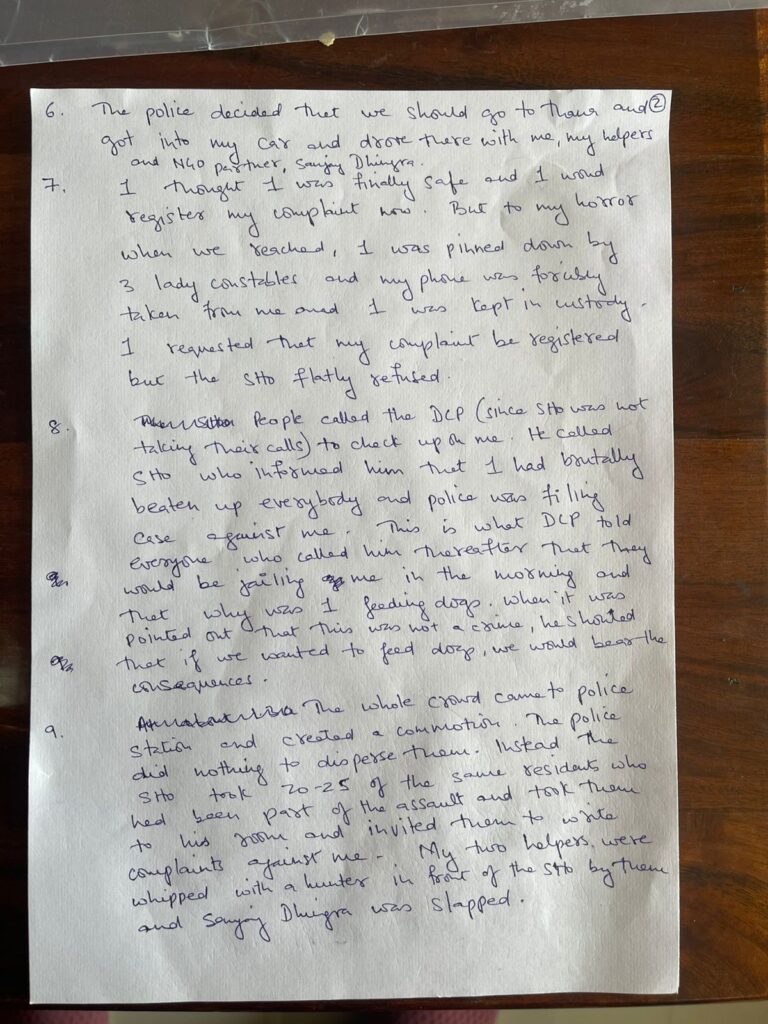 6. The police decided that we should go to Thana and ②
got into my car and drove there with me, my helpers
and NGO partner, Sanjay Dhingra.
7. I thought I was finally safe and I woud
register my complaint now. But to my horror
when we reached, I was pinned down by
3 lady constables and my phone was forcibly
taken from me and I was kept in custody.
I requested that my complaint be registered
but the SHO flatly refused.
8. People called the DCP (since SHO was not
taking their calls) to check up on me. He called
SHO who informed him that I had brutally
beaten up everybody and police was filing
case against me. This is what DCP told
everyone who called him thereafter that they
would be jailing me in the morning and
that why was I feeding dogs. When it was
pointed out that this was not a crime, he shouted
that if we wanted to feed dogs, we would bear the
consequences.
9. The whole crowd came to police
station and created a commotion. The police
did nothing to disperse them. Instead the
SHO took 20-25 of the same residents who
had been part of the assault and took them
to his room and invited them to write
complaints against me. My two helpers were
whipped with a hunter in front of the SHO by them
and Sanjay Dhingra was slapped.